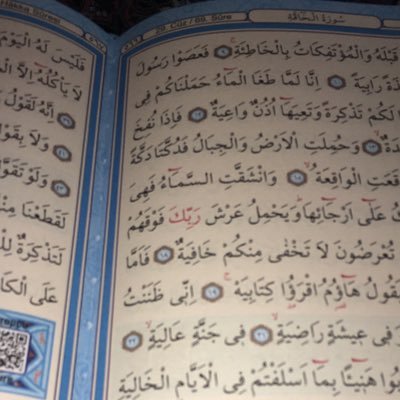 ٥٦٦ 29. Cüz / 69. Sûre سُورَةُ الْحَاقَّةِ
قَبْلَهُ وَالْمُؤْتَفِكَاتُ بِالْخَاطِئَةِ ۚ ٩ فَعَصَوْا رَسُولَ
ذَةً رَابِيَةً ١٠ اِنَّا لَمَّا طَغَا الْمَٓاءُ حَمَلْنَاكُمْ فِى
لَكُمْ تَذْكِرَةً وَتَعِيَهَٓا اُذُنٌ وَاعِيَةٌ ١٢ فَاِذَا نُفِخَ
دَةٌ ۙ ١٣ وَحُمِلَتِ الْاَرْضُ وَالْجِبَالُ فَدُكَّتَا دَكَّةً
قَعَتِ الْوَاقِعَةُ ۙ ١٥ وَانْشَقَّتِ السَّمَٓاءُ فَهِىَ
كُ عَلٰٓى اَرْجَٓائِهَا ۜ وَيَحْمِلُ عَرْشَ رَبِّكَ فَوْقَهُمْ
تُعْرَضُونَ لَا تَخْفٰى مِنْكُمْ خَافِيَةٌ ١٨ فَاَمَّا
يَقُولُ هَٓاؤُمُ اقْرَؤُا كِتَابِيَهْ ۚ ١٩ اِنّٖى ظَنَنْتُ
وَ فِى عِيشَةٍ رَاضِيَةٍ ۙ ٢١ فِى جَنَّةٍ عَالِيَةٍ ۙ ٢٢
بُوا هَنٖٓيـًٔا بِمَٓا اَسْلَفْتُمْ فِى الْاَيَّامِ الْخَالِيَةِ
Hâkka Sûresi
فَلَيْسَ لَهُ الْيَوْمَ
لَا يَأْكُلُهُٓ اِلَّا الْ
اِنَّهُ لَقَوْلُ
وَلَا بِقَوْلِ
وَلَوْ تَقَوَّلَ
لَقَطَعْنَا مِنْهُ
لَتَذْكِرَةٌ لِلْ
عَلَى الْكَا